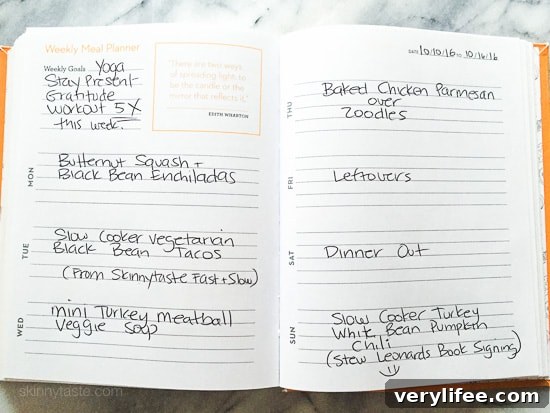 Weekly Meal Planner
Weekly Goals Yoga
Stay Present
Gratitude
Workout 5X
this week.
"There are two ways
of spreading light: to
be the candle or the
mirror that reflects it."
EDITH WHARTON
MON
Butternut Squash +
Black Bean Enchiladas
TUE
Slow Cooker Vegetarian
Black Bean Tacos
(From Skinnytaste Fast + Slow)
WED
mini Turkey meatball
Veggie Soup
skinnytaste.com
DATE 10/10/16 TO 10/16/16
THU
Baked Chicken Parmesan
over
Zoodles
FRI
Leftovers
SAT
Dinner Out
SUN
Slow Cooker Turkey
White Bean Pumpkin
Chili
(Stew Leonards Book Signing)
verylifee.com